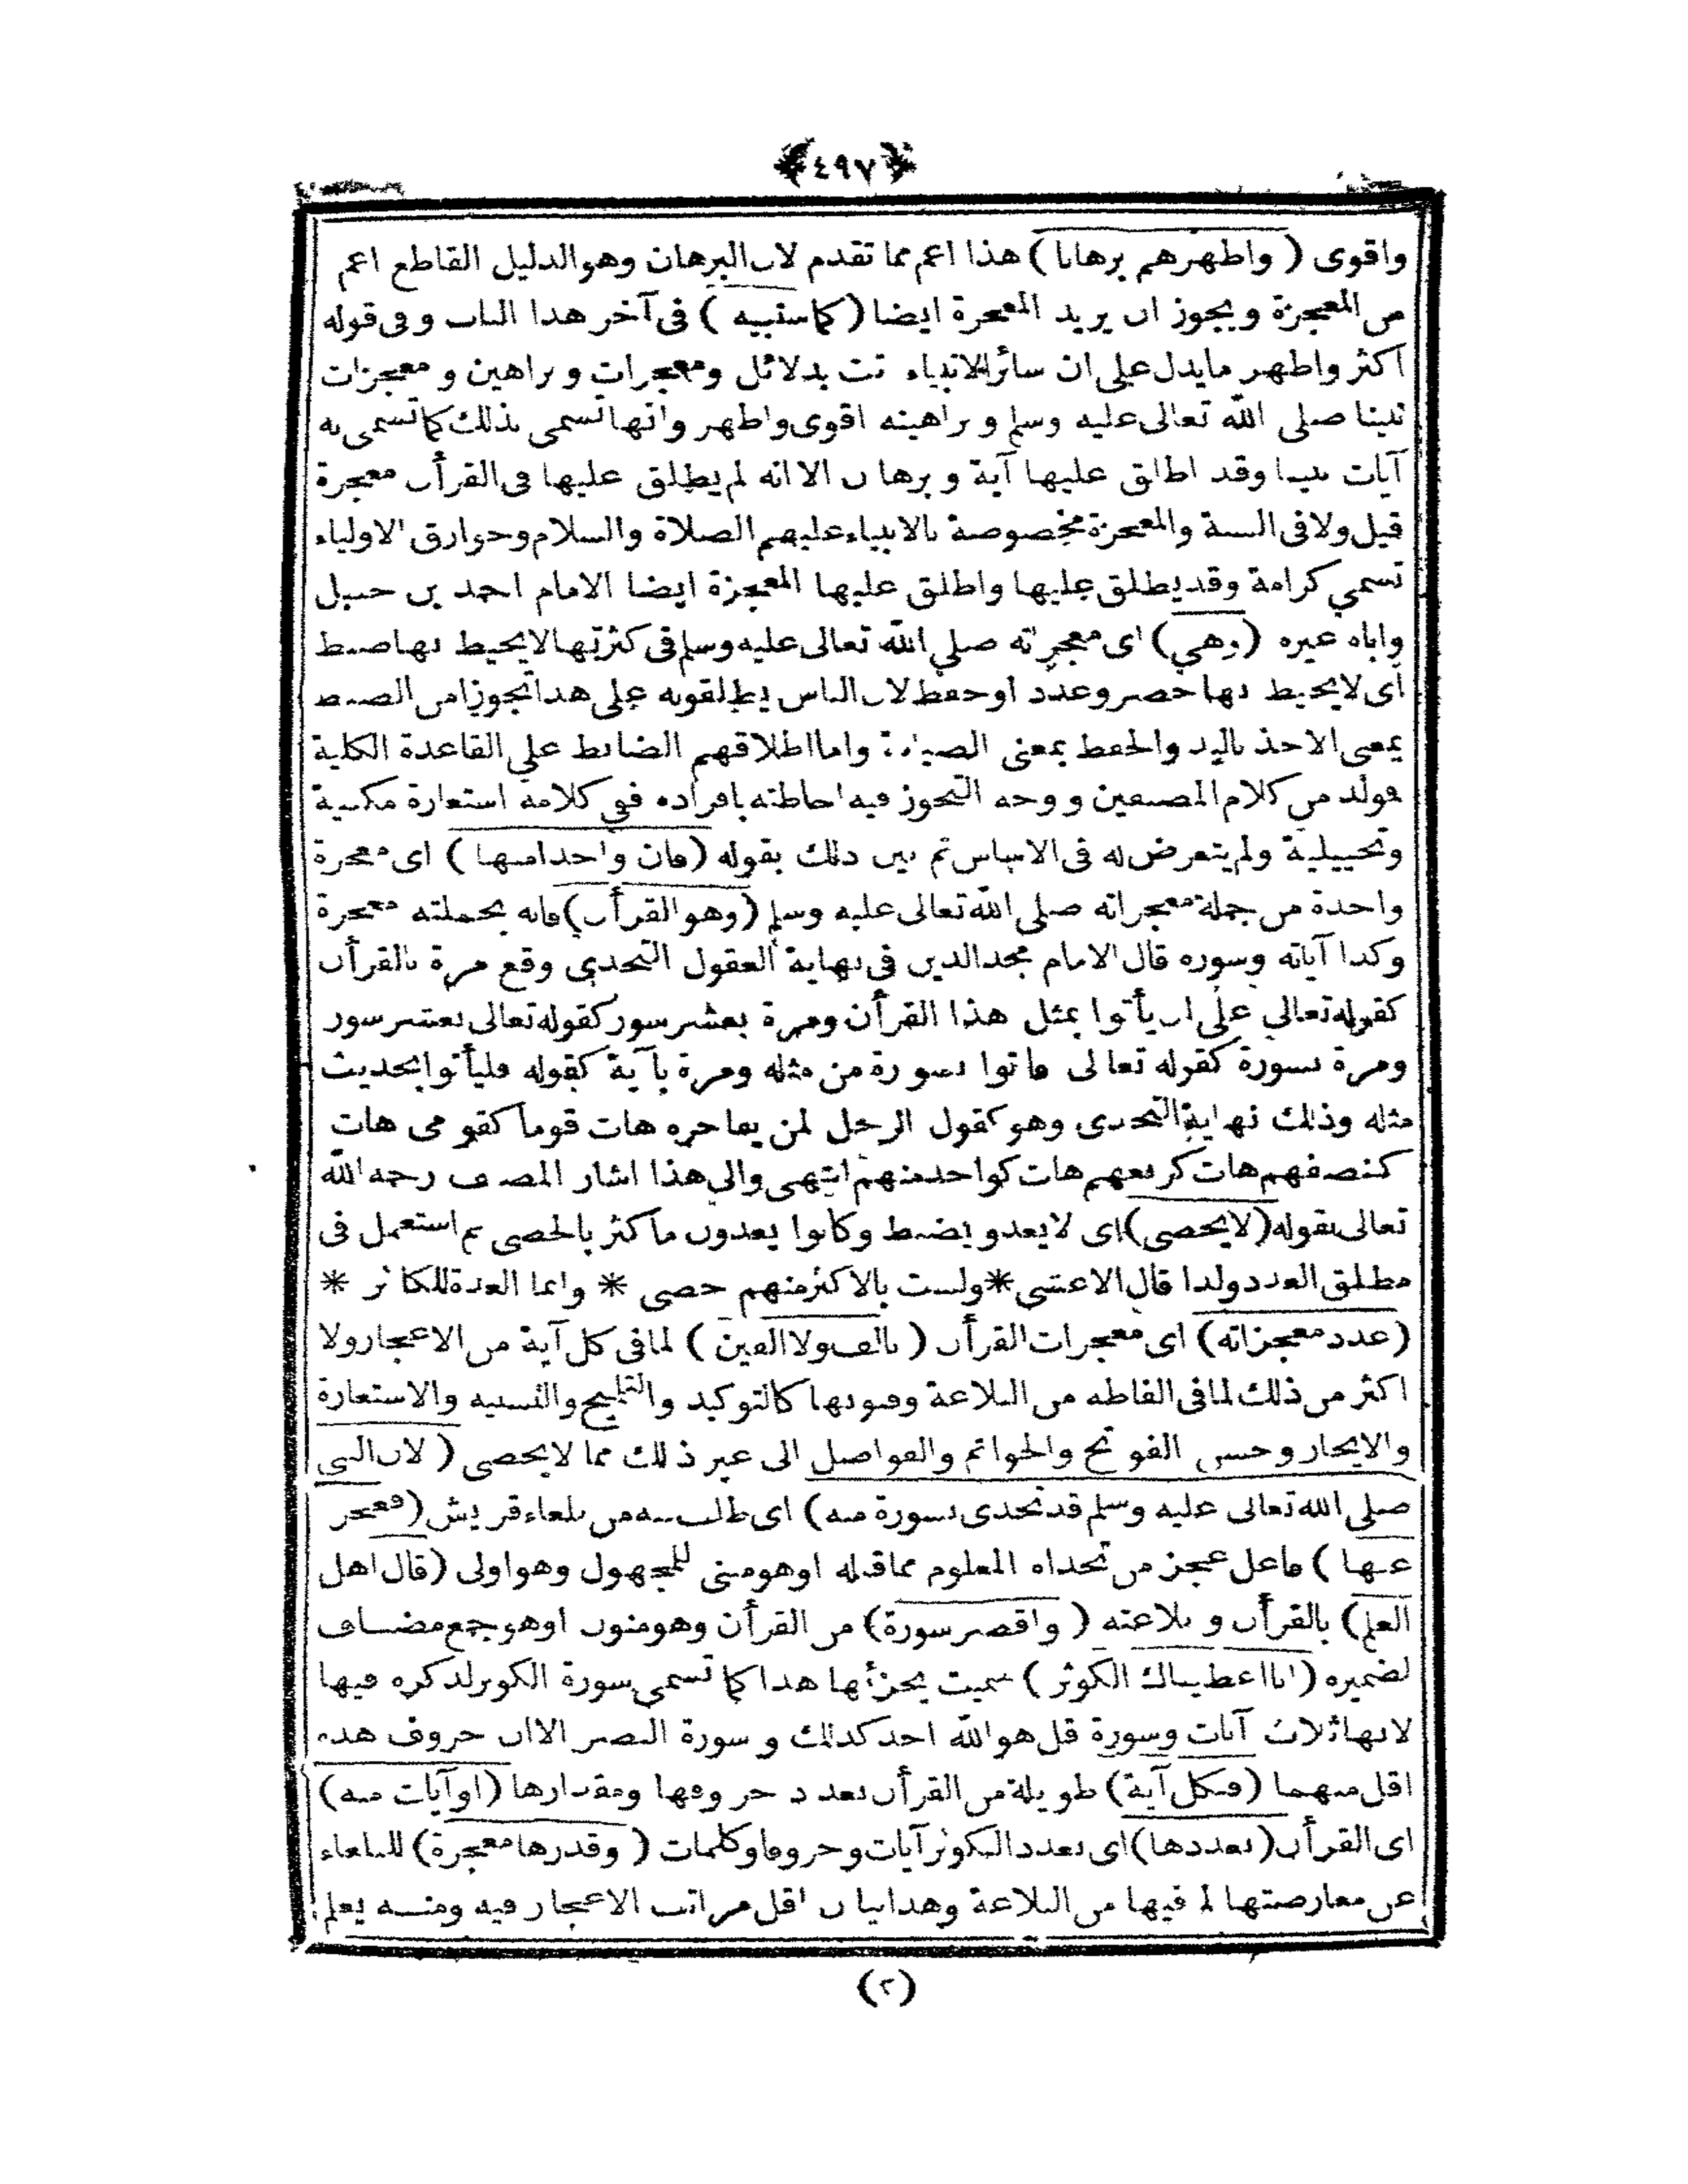 ﴿٤٩٧﴾
واقوى ( واظهرهم برهانا ) هذا اعم مما تقدم لان البرهان وهو الدليل القاطع اعم
من المعجزة ويجوز ان يريد المعجزة ايضا ( كما سنبينه ) فى آخر هذا الباب وفى قوله
اكثر واظهر ما يدل على ان سائر الانبياء اتت بدلائل ومعجزات وبراهين ومعجزات
نبينا صلى الله تعالى عليه وسلم وبراهينه اقوى واظهر وانها تسمى بذلك كما تسمى به
آيات نبينا وقد اطلق عليها آية وبرهان الا انه لم يطلق عليها فى القرأن معجزة
قيل ولا فى السنة والمعجزة مخصوصة بالانبياء عليهم الصلاة والسلام وخوارق الاولياء
تسمى كرامة وقد يطلق عليها واطلق عليها المعجزة ايضا الامام احمد بن حنبل
واباه غيره ( وهى ) اى معجزاته صلى الله تعالى عليه وسلم فى كثرتها لا يحيط بها ضبط
اى لا يحيط بها حصر وعدد او حفظ لان الناس يطلقونه على هذا تجوزا من الضبط
بمعنى الاخذ باليد والحفظ بمعنى الصيانة واما اطلاقهم الضابط على القاعدة الكلية
فولد من كلام المصنفين ووجه التجوز فيه احاطته بافراده ففى كلامه استعارة مكنية
وتخييلية ولم يتعرض له فى الاساس ثم بين ذلك بقوله ( فان واحدا منها ) اى معجزة
واحدة من جملة معجزاته صلى الله تعالى عليه وسلم ( وهو القرأن ) فانه بجملته معجزة
وكذا آياته وسوره قال الامام مجد الدين فى نهاية العقول التحدى وقع مرة بالقرأن
كقوله تعالى على ان يأتوا بمثل هذا القرأن ومرة بعشر سور كقوله تعالى بعشر سور
ومرة بسورة كقوله تعالى فاتوا بسورة من مثله ومرة بآية كقوله فليأتوا بحديث
مثله وذلك نهاية التحدى وهو كقول الرجل لمن يفاخره هات قوما كقومى هات
كنصفهم هات كربعهم هات كواحد منهم انتهى والى هذا اشار المصنف رحمه الله
تعالى بقوله ( لا يحصى ) اى لا يعد ويضبط وكانوا يعدون ما كثر بالحصى ثم استعمل فى
مطلق العدد ولذا قال الاعشى * ولست بالاكثر منهم حصى * وانما العزة للكاثر *
( عدد معجزاته ) اى معجزات القرأن ( بالف ولا الفين ) لما فى كل آية من الاعجاز ولا
اكثر من ذلك لما فى الفاظه من البلاغة وفنونها كالتوكيد والتلميح والتشبيه والاستعارة
والايجاز وحسن الفواتح والخواتم والفواصل الى غير ذلك مما لا يحصى ( لان النبى
صلى الله تعالى عليه وسلم قد تحدى بسورة منه ) اى طلب منه من بلغاء قريش ( فعجز
عنها ) فاعل عجز من تحداه المعلوم مما قبله او هو مبنى للمجهول وهو اولى ( قال اهل
العلم ) بالقرأن وبلاغته ( واقصر سورة ) من القرأن وهو منون او هو جمع مضاف
لضميره ( انا اعطيناك الكوثر ) سميت بجزئها هذا كما تسمى سورة الكوثر لذكره فيها
لانها ثلاث آيات وسورة قل هو الله احد كذلك وسورة النصر الا ان حروف هذه
اقل منهما ( فكل آية ) طويلة من القرأن بعدد حروفها ومقدارها ( او آيات منه )
اى القرأن ( بعددها ) اى بعدد الكوثر آيات وحروفا وكلمات ( وقدرها معجزة ) للبلغاء
عن معارضتها لما فيها من البلاغة وهذا بيان اقل مراتب الاعجاز فيه ومنه يعلم
(٢)